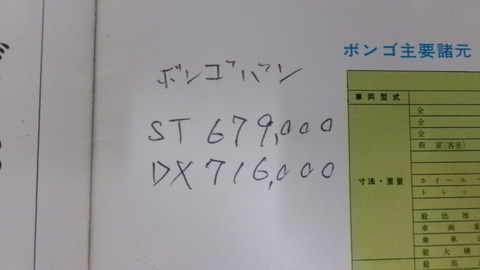 ボンゴバン
ST 679,000
DX 716,000
ボンゴ主要諸元
車両型式
全
全
全
荷室(客室)
寸法・重量
ホイール
トレッ
最低地
車両重
乗車定
最大積
最高